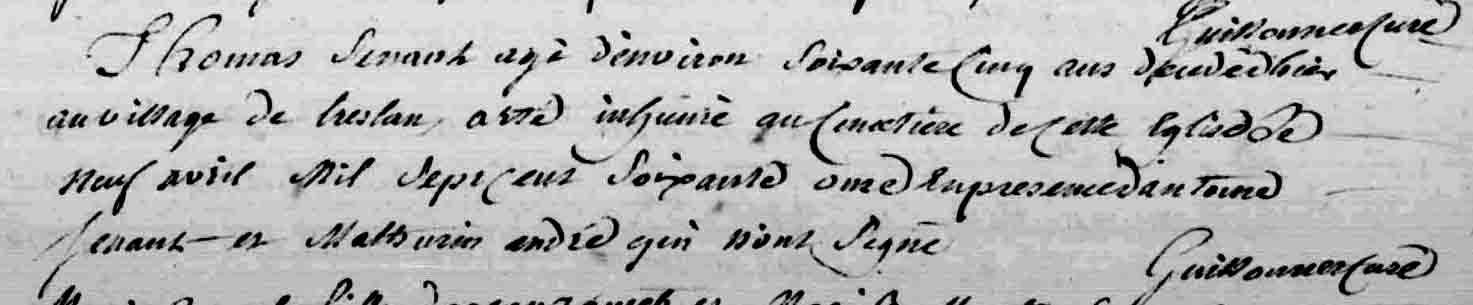 Guillonner Curé
Thomas Senant agé d'environ Soixante Cinq ans decedé hier
au village de treslan a esté inhumé au Cimetiere de Cette Eglise le
neuf avril Mil Sept Cent Soixante onze En presence d'antoine
Senant et Mathurin andré qui n'ont Signé
Guillonner Curé